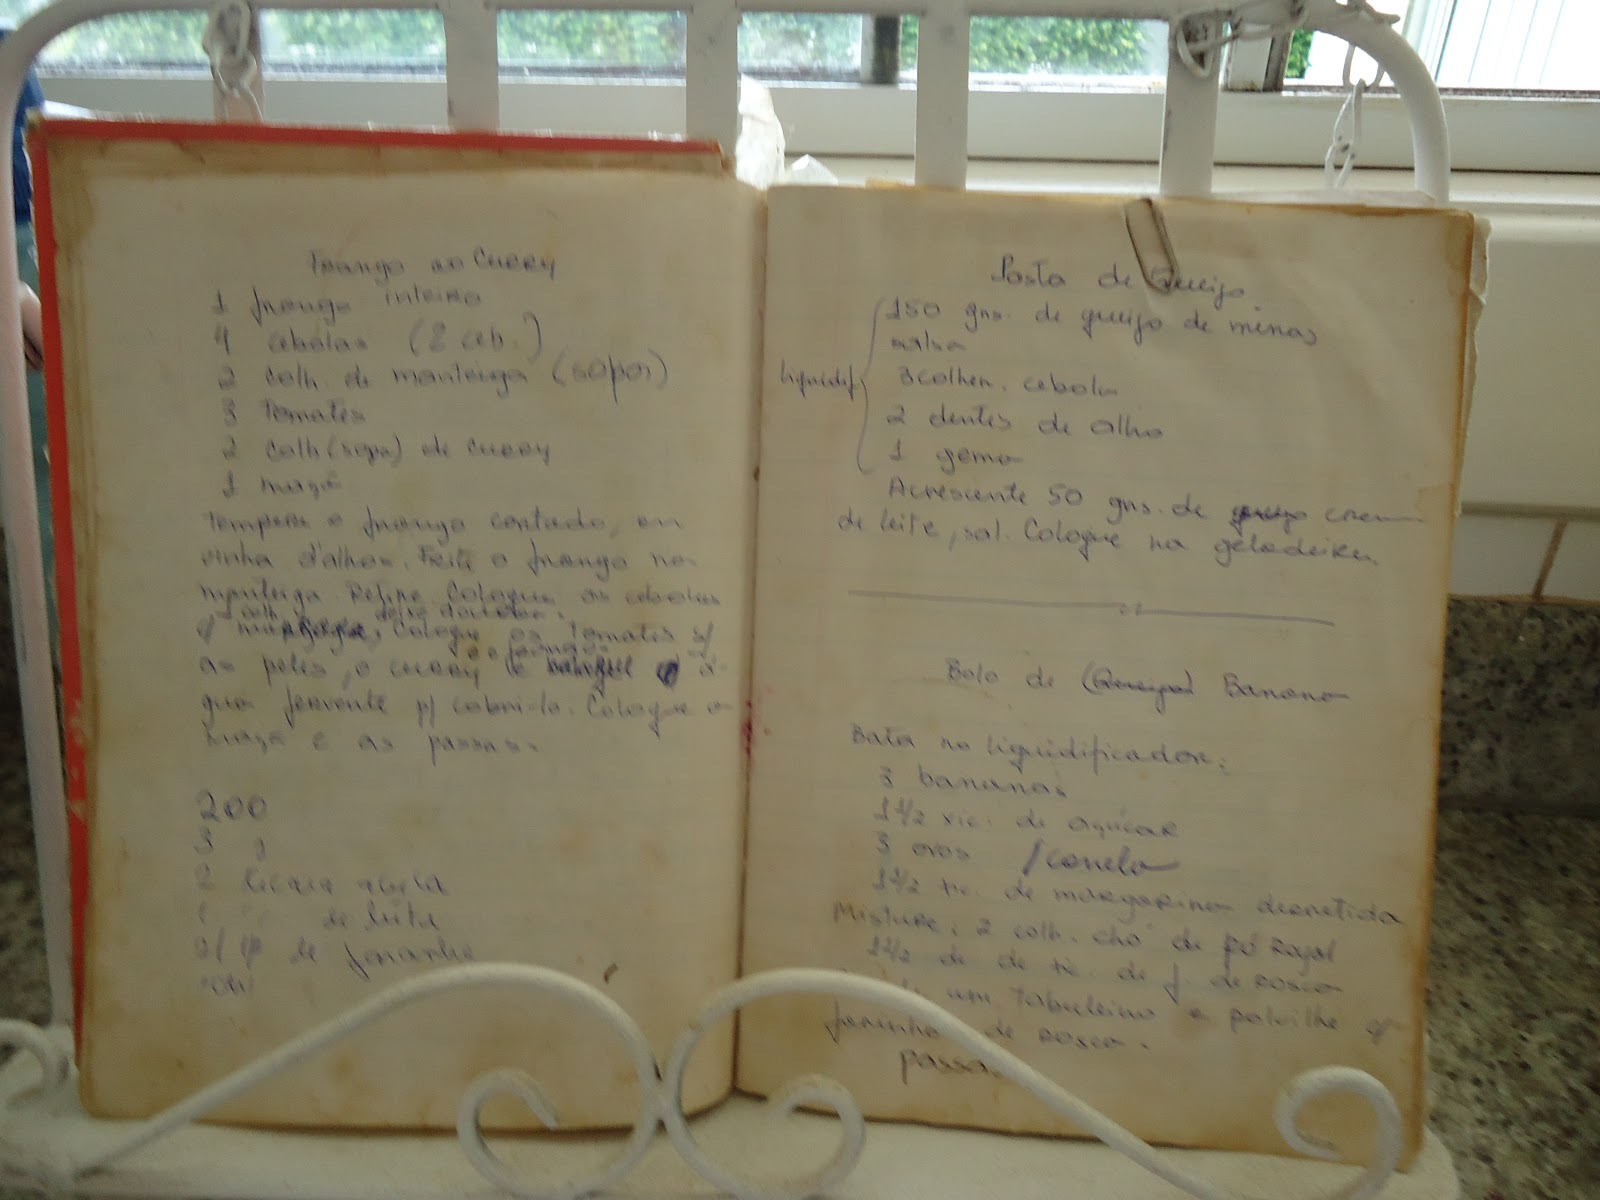 Frango ao CURRY
1 frango inteiro
4 cebolas (2 ceb.)
2 colh. de manteiga (sopa)
3 Tomates
2 colh (sopa) de CURRY
1 maçã
Tempere o frango cortado, em
vinha d'alhos. Frite o frango na
manteiga. Refine. Coloque as cebolas
colh. deixe dourar.
c/ Coloque os Tomates s/
e o frango
as peles, o curry e a á-
gua fervente p/ cobri-lo. Coloque a
maça e as passas.
200
3 g
2
1 " " de leite
de
Pasta de Queijo
150 grs. de queijo de minas
salsa
liquidif. 3 colher. cebola
2 dentes de alho
1 gema
Acrescente 50 grs. de queijo creme
de leite, sal. Coloque na geladeira
Bolo de (Queijo) Banana
Bata no liquidificador:
3 bananas
1 1/2 xic. de açúcar
3 ovos /canela
1 1/2 xic. de margarina derretida
Misture: 2 colh. chá de pó Royal
1 1/2 de de xic. de f. de rosca
um Tabuleiro e polvilhe c/
farinha de rosca.
passa